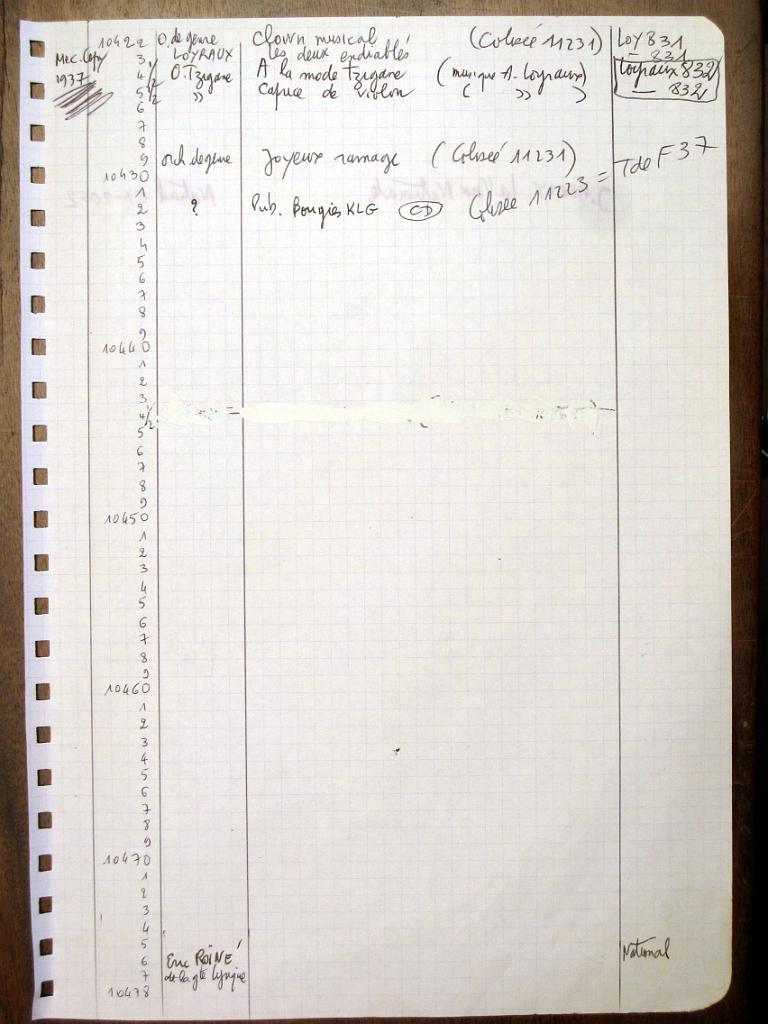 10422 O. de genre Clown musical (Colisée 11231) LOY 831
Mec. Copy 3 LOYRAUX Les deux endiablés — 831
1937 4 1/2 O. Tzigane A la mode Tzigane (musique A. Loyraux) Loyraux 832
5 1/2 " Caprice de violon ( " ) — 832
6
7
8
9 orch. de genre Joyeux ramage (Colisée 11231)
10430
1
2 ? Pub. Bougies KLG CD Colisée 11223 = T de F 37
3
4
5
6
7
8
9
10440
1
2
3
4 1/2
5
6
7
8
9
10450
1
2
3
4
5
6
7
8
9
10460
1
2
3
4
5
6
7
8
9
10470
1
2
3
4
5
6 Eric ROINÉ National
7 de la gté Lyrique
10478